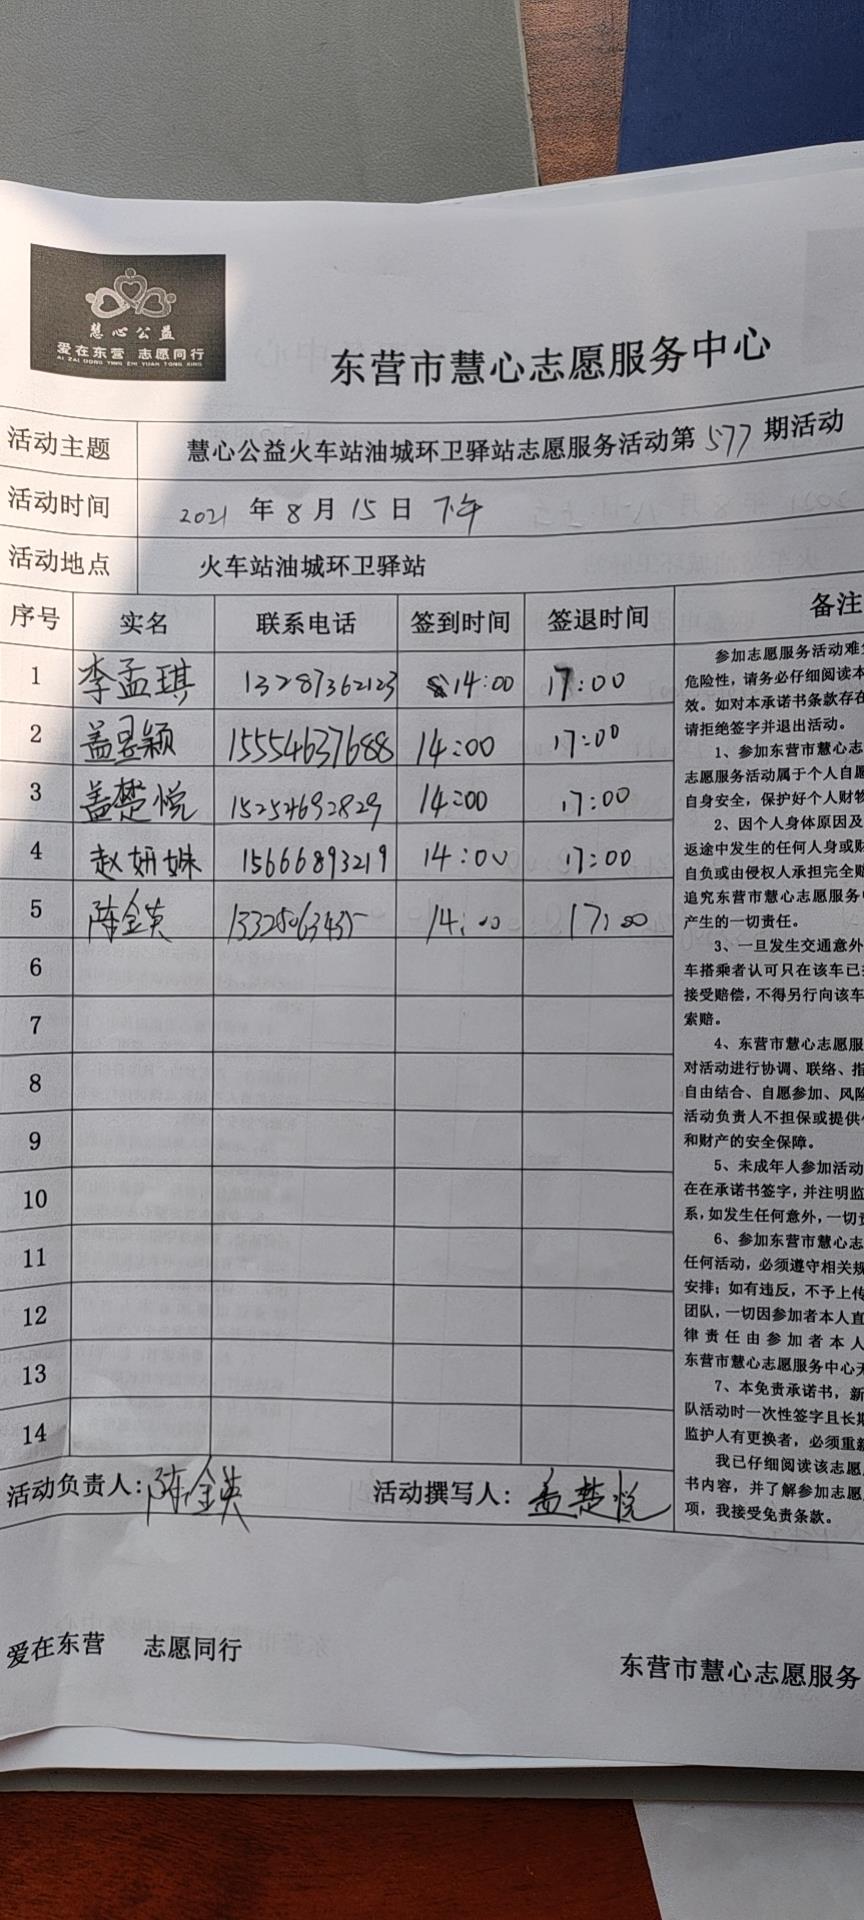 慧心公益
爱在东营 志愿同行
AI ZAI DONG YING ZHI YUAN TONG XING
东营市慧心志愿服务中心
活动主题 慧心公益火车站油城环卫驿站志愿服务活动第577期活动
活动时间 2021年8月15日 下午
活动地点 火车站油城环卫驿站
序号 实名 联系电话 签到时间 签退时间 备注
1 李孟琪 13287362123 14:00 17:00
2 盖昱颖 15554637688 14:00 17:00
3 盖楚悦 15254692829 14:00 17:00
4 赵妍姝 15666893219 14:00 17:00
5 陈金英 14:00 17:00
6
7
8
9
10
11
12
13
14
参加志愿服务活动难
危险性，请务必仔细阅读本
效。如对本承诺书条款存在
请拒绝签字并退出活动。
1、参加东营市慧心志
志愿服务活动属于个人自愿
自身安全，保护好个人财物
2、因个人身体原因及
返途中发生的任何人身或财
自负或由侵权人承担完全赔
追究东营市慧心志愿服务
产生的一切责任。
3、一旦发生交通意外
车搭乘者认可只在该车已
接受赔偿，不得另行向该车
索赔。
4、东营市慧心志愿服
对活动进行协调、联络、指
自由结合、自愿参加、风险
活动负责人不担保或提供
和财产的安全保障。
5、未成年人参加活动
在在承诺书签字，并注明监
系，如发生任何意外，一切责
6、参加东营市慧心志
任何活动，必须遵守相关规
安排；如有违反，不予上传
团队，一切因参加者本人直
律责任由参加者本人
东营市慧心志愿服务中心无
7、本免责承诺书，新
队活动时一次性签字且长期
监护人有更换者，必须重新
我已仔细阅读该志愿
书内容，并了解参加志愿
项，我接受免责条款。
活动负责人：陈金英 活动撰写人：盖楚悦
爱在东营 志愿同行 东营市慧心志愿服务